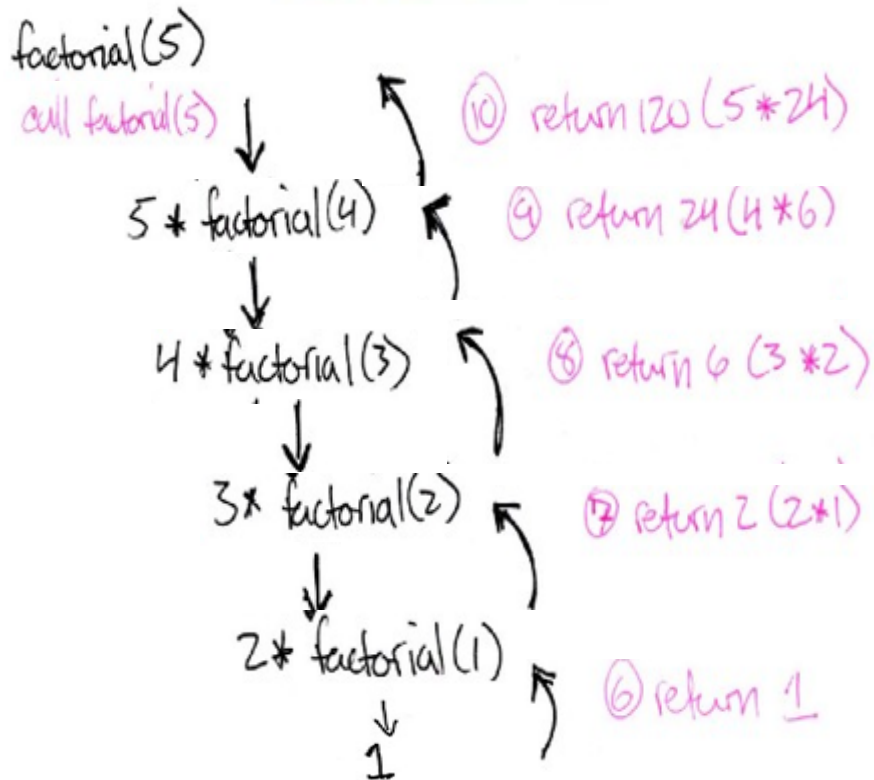 factorial(5)
call factorial(5)
⑩ return 120 (5*24)
5 * factorial(4)
⑨ return 24 (4*6)
4 * factorial(3)
⑧ return 6 (3*2)
3* factorial(2)
⑦ return 2 (2*1)
2* factorial(1)
⑥ return 1
1